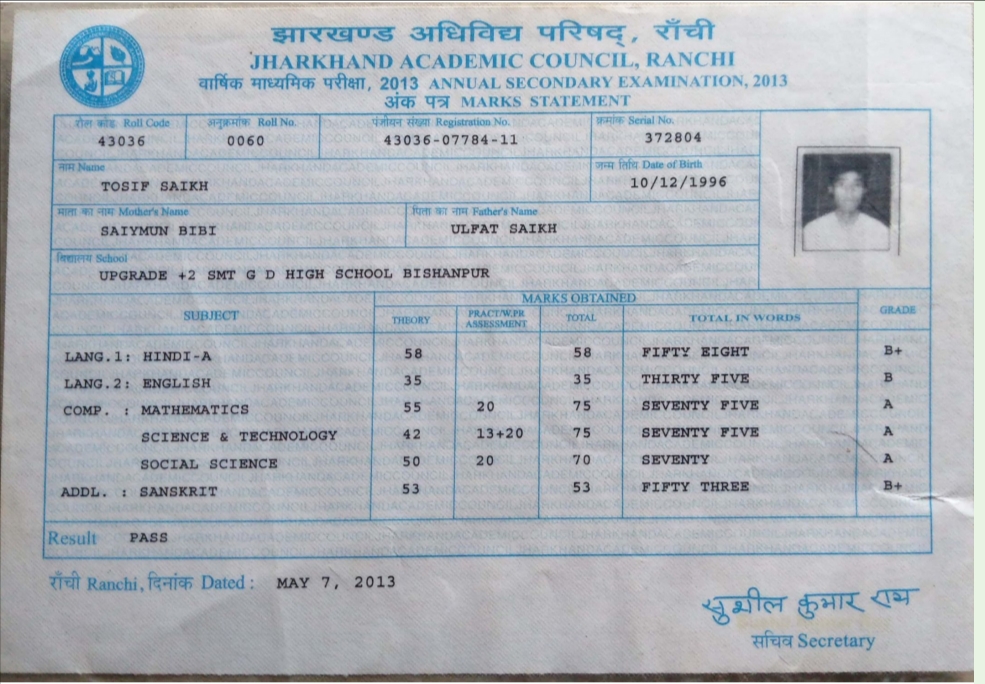 झारखण्ड अधिविद्य परिषद्, राँची
JHARKHAND ACADEMIC COUNCIL, RANCHI
वार्षिक माध्यमिक परीक्षा, 2013 ANNUAL SECONDARY EXAMINATION, 2013
अंक पत्र MARKS STATEMENT
रौल कोड Roll Code अनुक्रमांक Roll No. पंजीयन संख्या Registration No. क्रमांक Serial No.
43036 0060 43036-07784-11 372804
नाम Name जन्म तिथि Date of Birth
TOSIF SAIKH 10/12/1996
माता का नाम Mother's Name पिता का नाम Father's Name
SAIYMUN BIBI ULFAT SAIKH
विद्यालय School
UPGRADE +2 SMT G D HIGH SCHOOL BISHANPUR
MARKS OBTAINED
SUBJECT THEORY PRACT/W.PR ASSESSMENT TOTAL TOTAL IN WORDS GRADE
LANG.1: HINDI-A 58 58 FIFTY EIGHT B+
LANG.2: ENGLISH 35 35 THIRTY FIVE B
COMP. : MATHEMATICS 55 20 75 SEVENTY FIVE A
SCIENCE & TECHNOLOGY 42 13+20 75 SEVENTY FIVE A
SOCIAL SCIENCE 50 20 70 SEVENTY A
ADDL. : SANSKRIT 53 53 FIFTY THREE B+
Result PASS
राँची Ranchi, दिनांक Dated : MAY 7, 2013
सुशील कुमार राय
सचिव Secretary